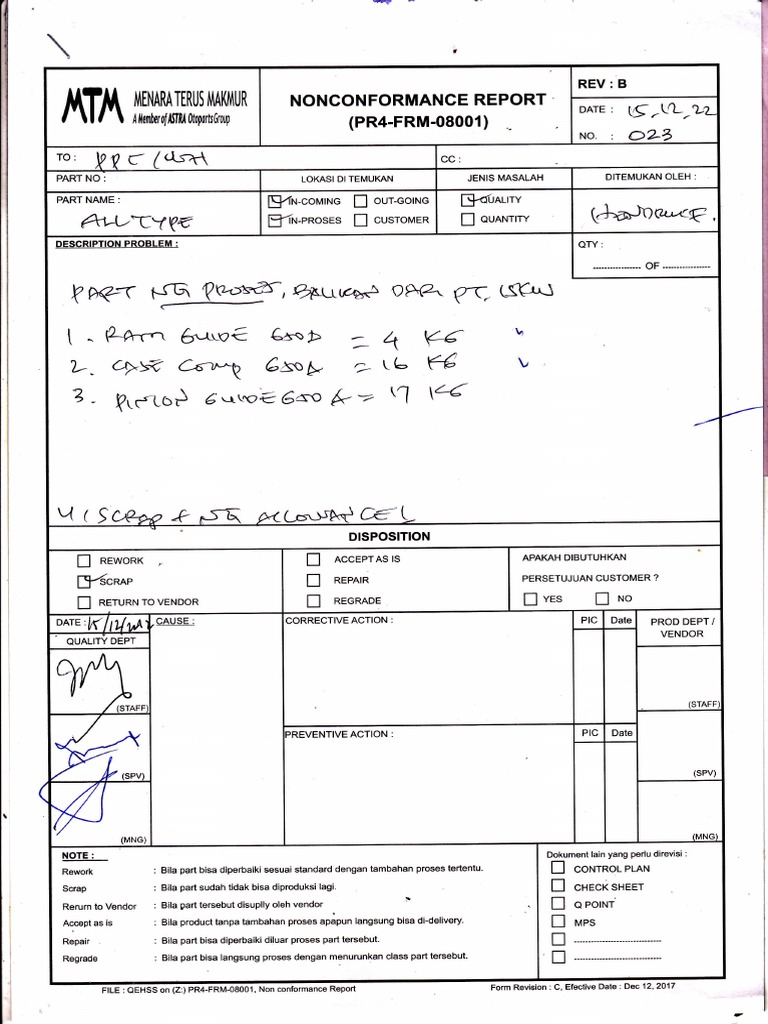 MTM MENARA TERUS MAKMUR
A Member of ASTRA Otoparts Group
NONCONFORMANCE REPORT
(PR4-FRM-08001)
REV : B
DATE : 15.12.22
NO. : 023
TO : PPC /
CC :
PART NO :
LOKASI DI TEMUKAN
JENIS MASALAH
DITEMUKAN OLEH :
PART NAME :
ALL TYPE
IN-COMING
OUT-GOING
QUALITY
IN-PROSES
CUSTOMER
QUANTITY
DESCRIPTION PROBLEM :
QTY :
OF
PART NG PROSES, BALIKAN DARI PT.
1. RAM GUIDE 650D = 4 KG
2. CASE COMP 650A = 16 KG
3. PINION GUIDE 650A = 17 KG
SCRAP NG ALLOWANCE
DISPOSITION
REWORK
ACCEPT AS IS
APAKAH DIBUTUHKAN
SCRAP
REPAIR
PERSETUJUAN CUSTOMER ?
RETURN TO VENDOR
REGRADE
YES
NO
DATE : 15/12/2022
CAUSE :
CORRECTIVE ACTION :
PIC
Date
PROD DEPT /
VENDOR
QUALITY DEPT
(STAFF)
(STAFF)
PREVENTIVE ACTION :
PIC
Date
(SPV)
(SPV)
(MNG)
(MNG)
NOTE :
Dokument lain yang perlu direvisi :
Rework : Bila part bisa diperbaiki sesuai standard dengan tambahan proses tertentu.
CONTROL PLAN
Scrap : Bila part sudah tidak bisa diproduksi lagi.
CHECK SHEET
Rerurn to Vendor : Bila part tersebut disuplly oleh vendor
Q POINT
Accept as is : Bila product tanpa tambahan proses apapun langsung bisa di-delivery.
MPS
Repair : Bila part bisa diperbaiki diluar proses part tersebut.
Regrade : Bila part bisa langsung proses dengan menurunkan class part tersebut.
FILE : QEHSS on (Z:) PR4-FRM-08001, Non conformance Report
Form Revision : C, Efective Date : Dec 12, 2017